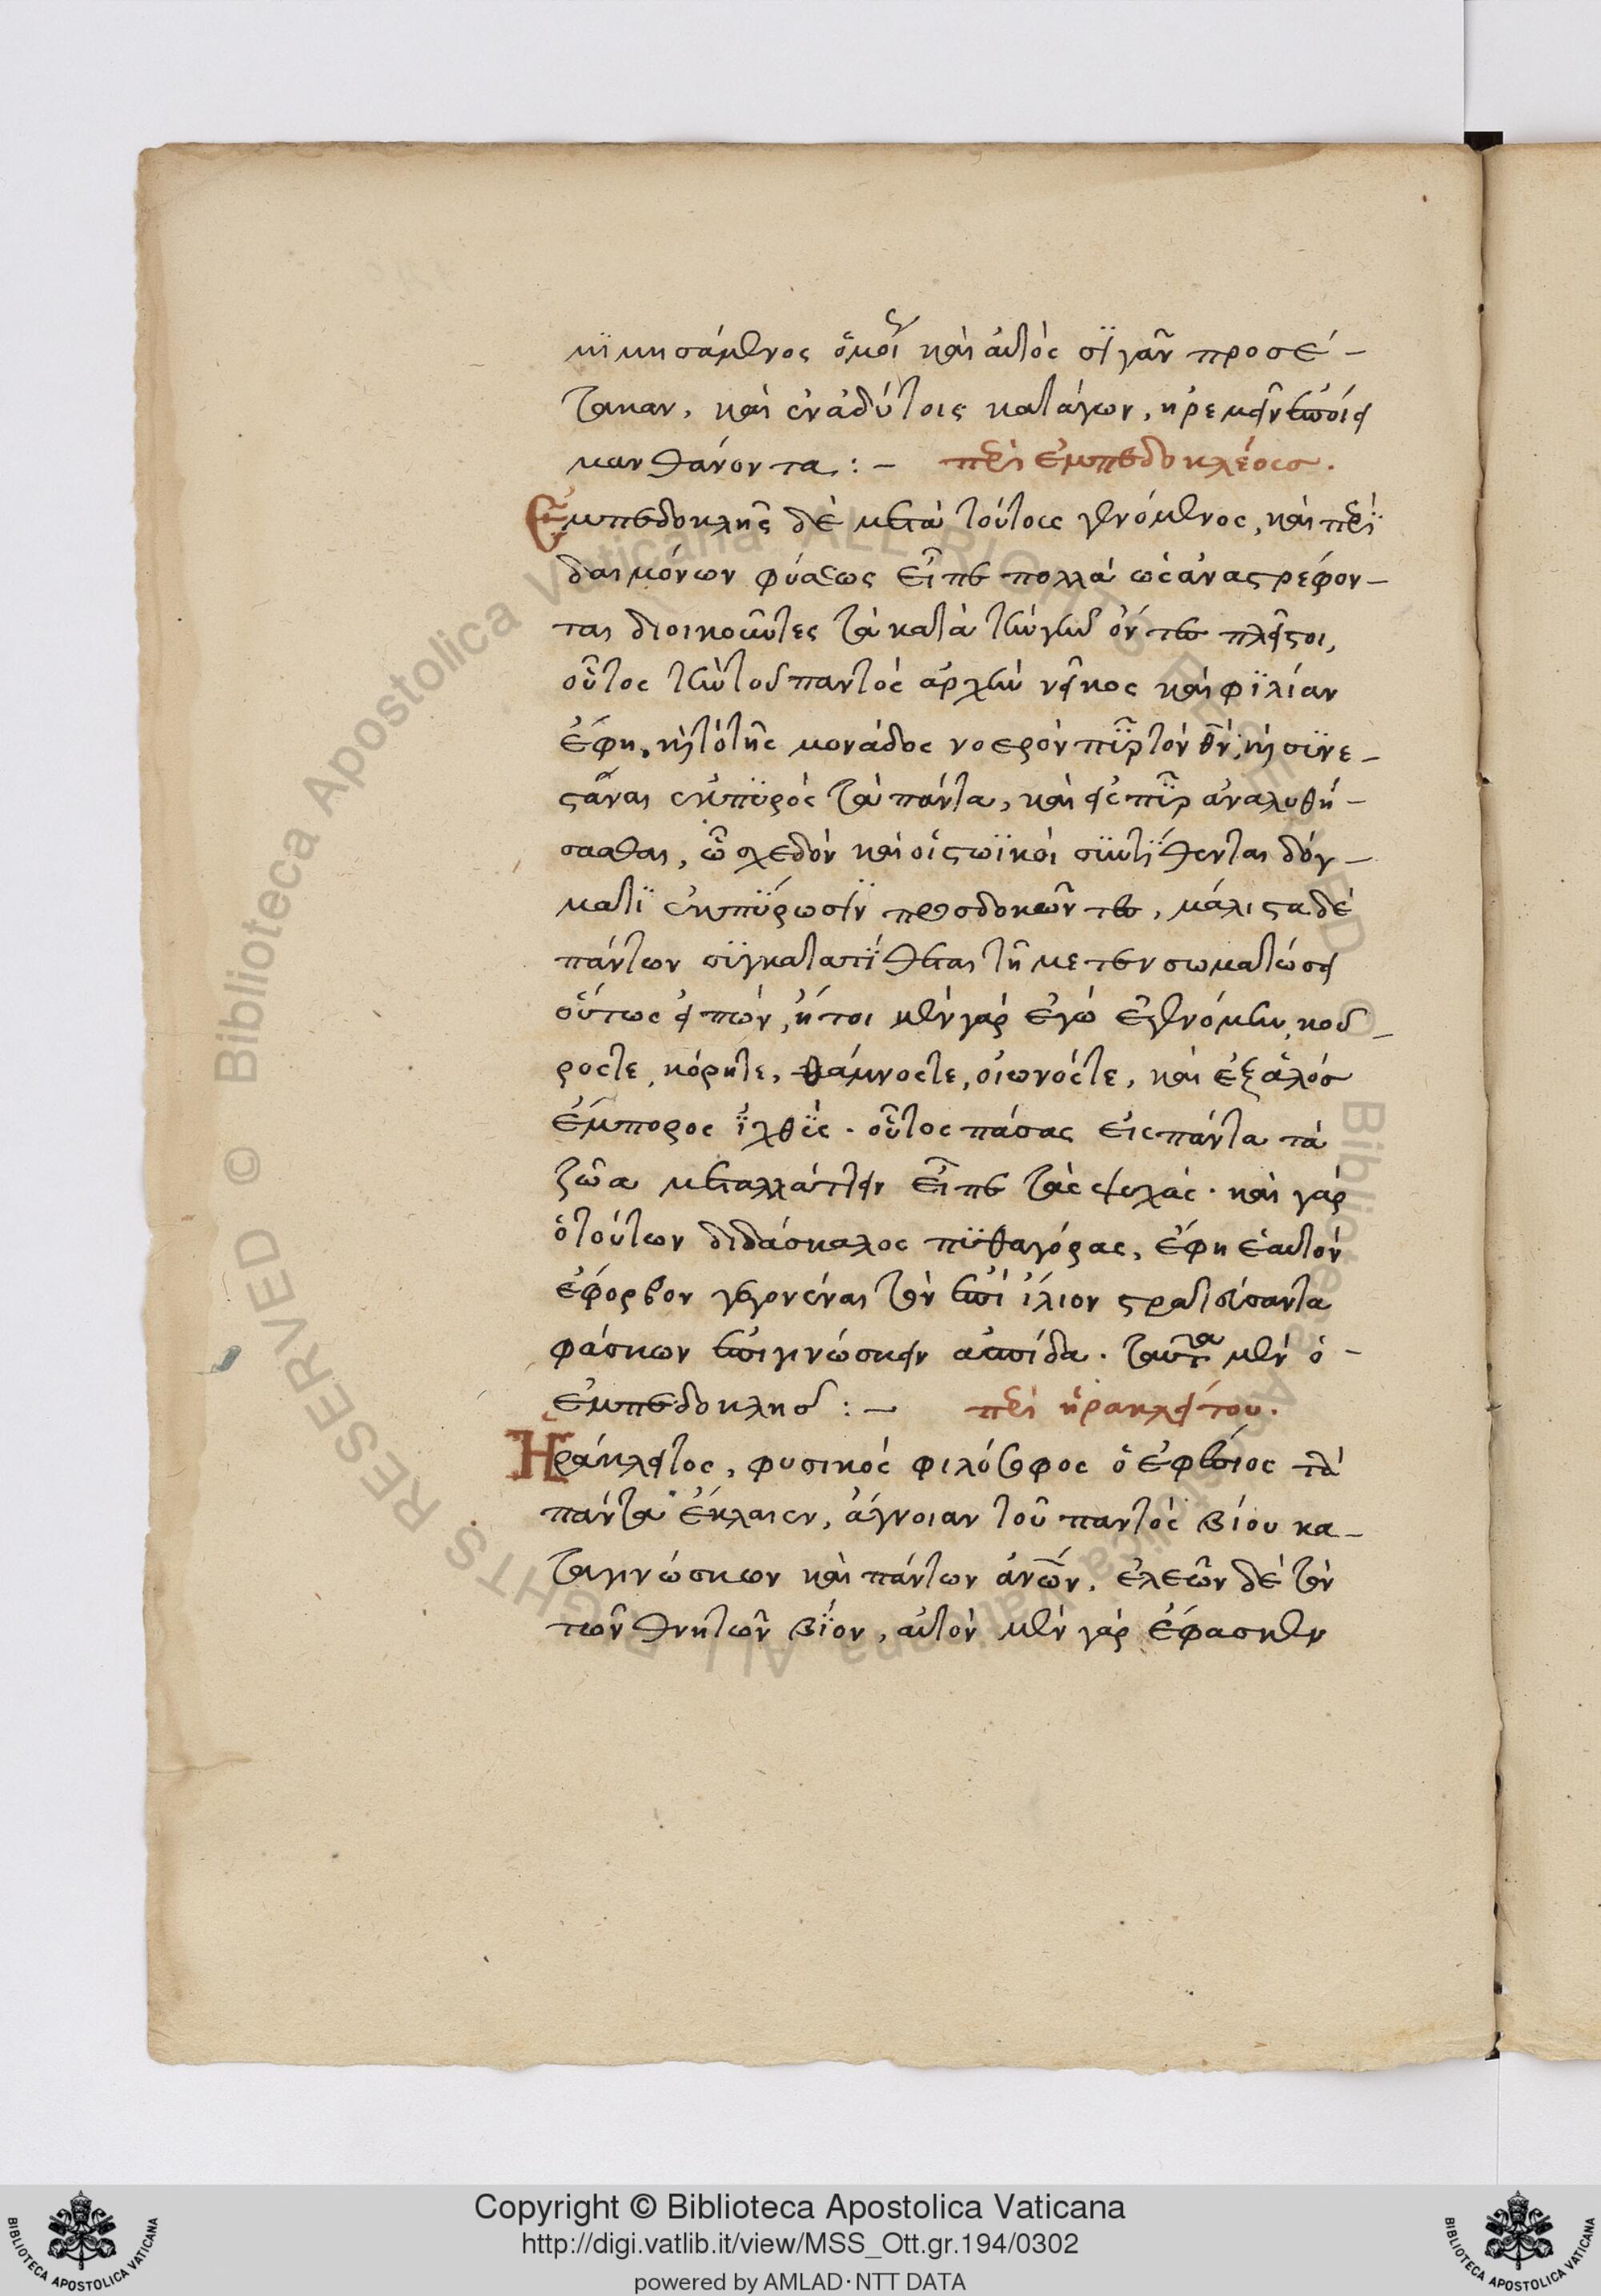 μϊμησάμενος ὁμοίως καὶ αὐτὸς σϊγᾶν προσέ-
ταττεν, καὶ ἐν ἀδύτοις κατάγων, ἠρεμεῖν ἐποίει
μανθάνοντα:- περὶ ἐμπεδοκλέους.
Ἐμπεδοκλῆς δὲ μετὰ τούτους γενόμενος, καὶ περὶ
δαιμόνων φύσεως εἶπε πολλὰ ὡς ἀναστρέφον-
ται διοικοῦντες τὰ κατὰ τὴν γῆν ὄντες πλεῖστοι,
οὗτος τὴν τοῦ παντὸς ἀρχὴν νεῖκος καὶ φϊλίαν
ἔφη, καὶ τὸ τῆς μονάδος νοερὸν πῦρ τὸν θν, καὶ σϋνε-
στάναι ἐκ πϋρὸς τὰ πάντα, καὶ εἰς πῦρ ἀναλυθή-
σεσθαι, ᾧ σχεδὸν καὶ οἱ στωϊκοὶ σϋντϊθενται δόγ-
ματϊ ἐκπϋρωσϊν προσδοκῶντες, μάλιστα δὲ
πάντων σϋγκατατϊθεται τῇ μετενσωματώσει
οὕτως εἰπών, ἤτοι μὲν γὰρ ἐγὼ ἐγενόμην, κοῦ-
ρος τε, κόρη τε, θάμνος τε, οἰωνός τε, καὶ ἐξ ἁλὸς
ἔμπορος ϊχθϋς. οὗτος πάσας εἰς πάντα τὰ
ζῶα μεταλλάττειν εἶπε τὰς ψυχάς. καὶ γὰρ
ὁ τούτων διδάσκαλος πϋθαγόρας, ἔφη ἑαυτὸν
ἔφορβον γεγονέναι τὸν ἐπὶ ἴλιον στρατεύσαντα
φάσκων ἐπιγινώσκειν ἀσπίδα. ταῦτα μὲν ὁ-
ἐμπεδοκλῆς:- περὶ ἡρακλείτου.
Ἡράκλειτος, φυσικὸς φιλόσοφος ὁ ἐφέσιος τὰ
πάντα ἔκλαιεν, ἄγνοιαν τοῦ παντὸς βίου κα-
ταγινώσκων καὶ πάντων ἀνων, ἐλεῶν δὲ τὸν
τῶν θνητῶν βϊον, αὐτὸν μὲν γὰρ ἔφασκεν
Copyright © Biblioteca Apostolica Vaticana
http://digi.vatlib.it/view/MSS_Ott.gr.194/0302
powered by AMLAD·NTT DATA